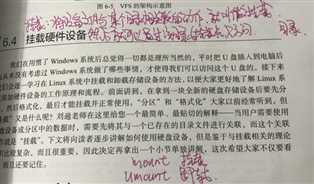 图 6-5 VFS 的架构示意图
6.4 挂载硬件设备
我们在用惯了 Windows 系统后总觉得一切都是理所当然的，平时把 U 盘插入到电脑后
从来没有考虑过 Windows 系统做了哪些事情，才使得我们可以访问这个 U 盘的。接下来
会逐一学习在 Linux 系统中挂载和卸载存储设备的方法，以便大家更好地了解 Linux 系
管理硬件设备的工作原理和流程。前面讲到，在拿到一块全新的硬盘存储设备后要先分
然后格式化，最后才能挂载并正常使用。“分区”和“格式化”大家以前经常听到，但
载”又是什么呢？刘遄老师在这里给您一个最简单、最贴切的解释——当用户需要使用
设备或分区中的数据时，需要先将其与一个已存在的目录文件进行关联，而这个关联
就是“挂载”。下文将向读者逐步讲解如何使用硬件设备，但是鉴于与挂载相关的理论
比较复杂，而且很重要，因此决定再拿出一个小节单独讲解，这次希望大家不仅要看
而且还要记住。
mount 挂载
umount 卸载